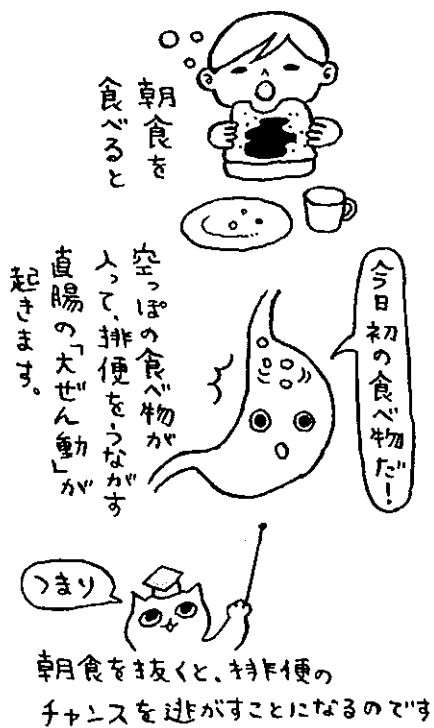 朝食を
食べると
今日初の食べ物だ!
空っぽの食べ物が
入って、排便をうながす
直腸の「大ぜん動」が
起きます。
つまり
朝食を抜くと、排便の
チャンスを逃がすことになるのです